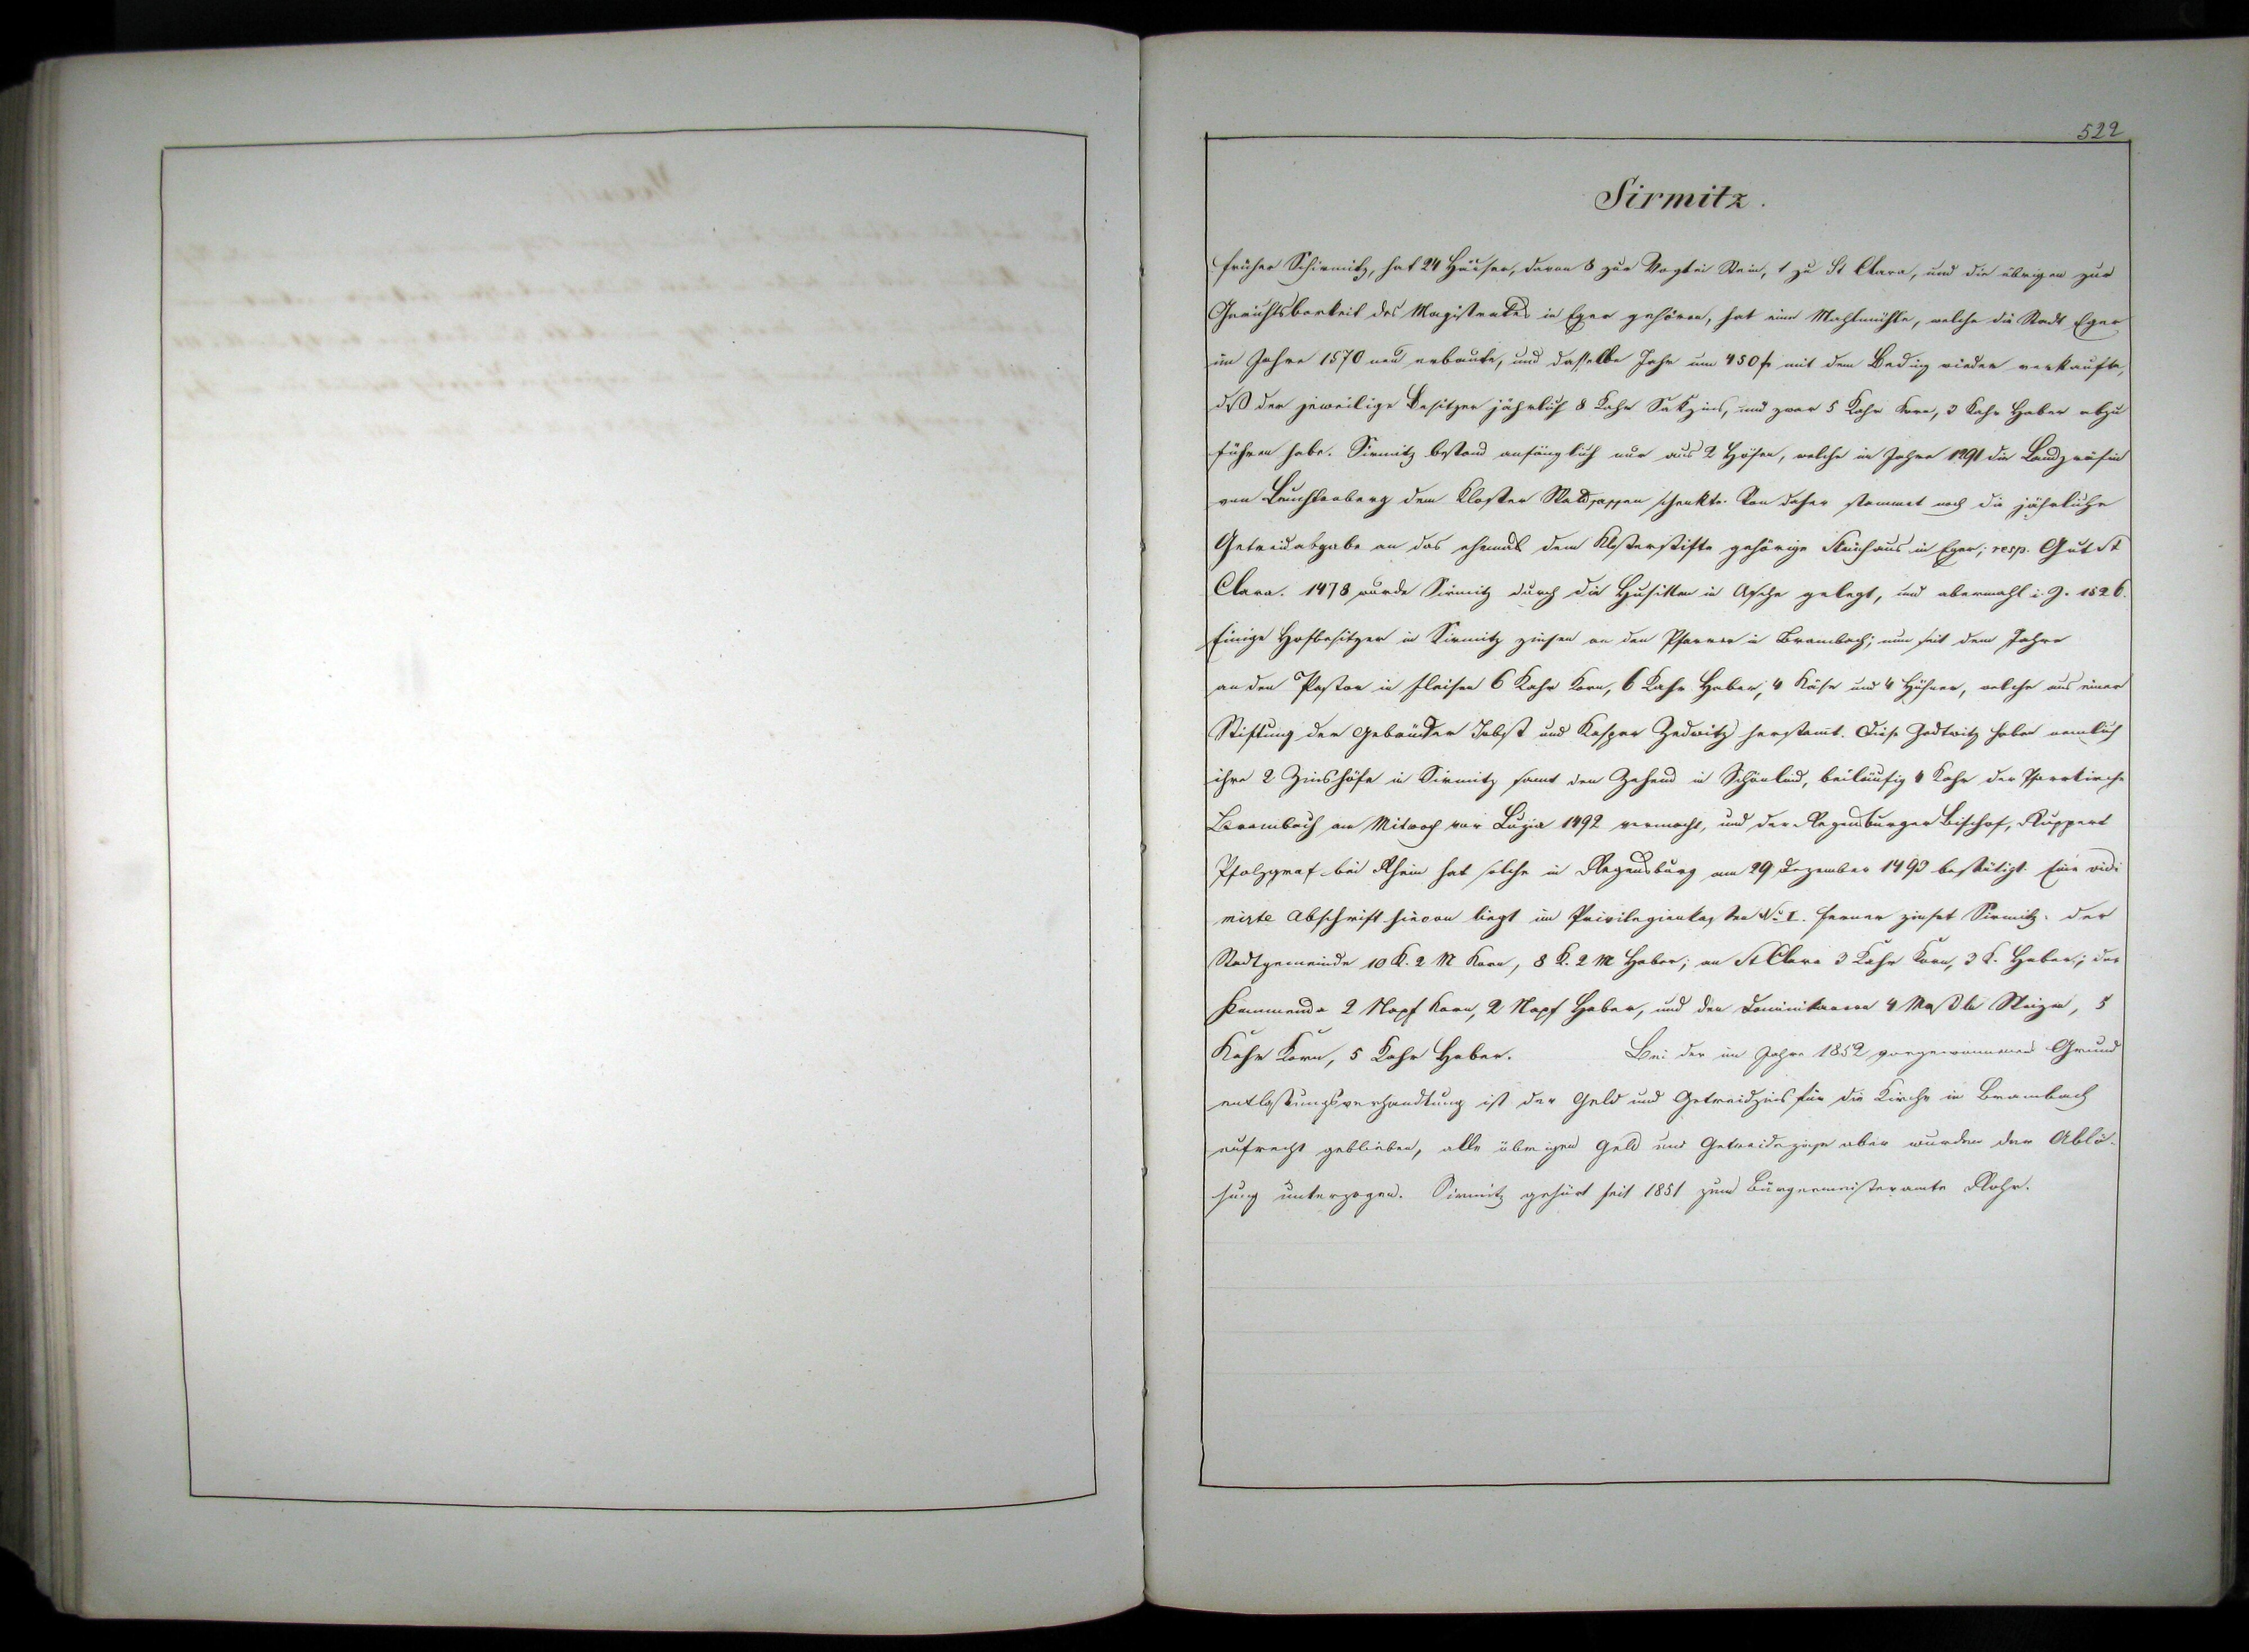 522
Sirmitz.
früher Schirmitz, hat 24 Häuser, davon 8 zur Vogtei Stein, 1 zu St Clara, und die übrigen zur
Gerichtsbarkeit des Magistrates in Eger gehören, hat eine Mahlmühle, welche die Stadt Eger
im Jahre 1570 neu erbaute, und dasselbe Jahr um 450 f mit dem Beding wieder verkaufte,
dß der jeweilige Besitzer jährlich 8 Kahr Sakzins, und zwar 5 Kahr Korn, 3 Kahr Haber abzu
führen habe. Sirmitz bestand anfänglich nur aus 2 Höfen, welche im Jahre 1291 die Landgräfin
von Leuchtenberg dem Kloster Waldsassen schenkte. Von daher stammet noch die jährliche
Getreidabgabe an das ehemals dem Klosterstifte gehörige Steinhaus in Eger; resp. Gut St
Clara. 1478 wurde Sirmitz durch die Husitten in Asche gelegt, und abermahl i. J. 1526.
Einige Hofbesitzer in Sirmitz zinsen an den Pfarrer in Brambach; nun seit dem Jahre
an den Pastor in Fleisen 6 Kahr Korn, 6 Kahr Haber, 4 Käse und 4 Hühner, welche aus einer
Stiftung der Gebrüder Jobst und Kaspar Zedwitz herstamt. Diese Zedtwitz haben nemlich
ihre 2 Zinshöfe in Sirmitz samt den Zehend in Schönlind, beiläufig 4 Kahr der Pfarrkirche
Brambach am Mitwoch vor Luzia 1492 vermacht, und der Regensburger Bischof, Ruppert
Pfalzgraf bei Rhein hat solche in Regensburg am 29 Dezember 1492 bestätigt. Eine vidi
mirte Abschrift hievon liegt im Privilegienkasten No. I. Ferner zinset Sirmitz der
Stadtgemeinde 10 K. 2 M Korn, 8 K. 2 M Haber; an St Clara 3 Kahr Korn, 3 K. Haber; der
Kommenda 2 Napf Korn, 2 Napf Haber, und den Dominikanern 4 Maßle Waizen, 5
Kahr Korn, 5 Kahr Haber. Bei der im Jahre 1852 vorgenommenen Grund
entlastungsverhandlung ist der Geld und Getreidzins für die Kirche in Brambach
aufrecht geblieben, alle übrigen Geld und Getreidezinse aber wurden der Ablö-
sung unterzogen. Sirmitz gehört seit 1851 zum Bürgermeisteramte Rohr.